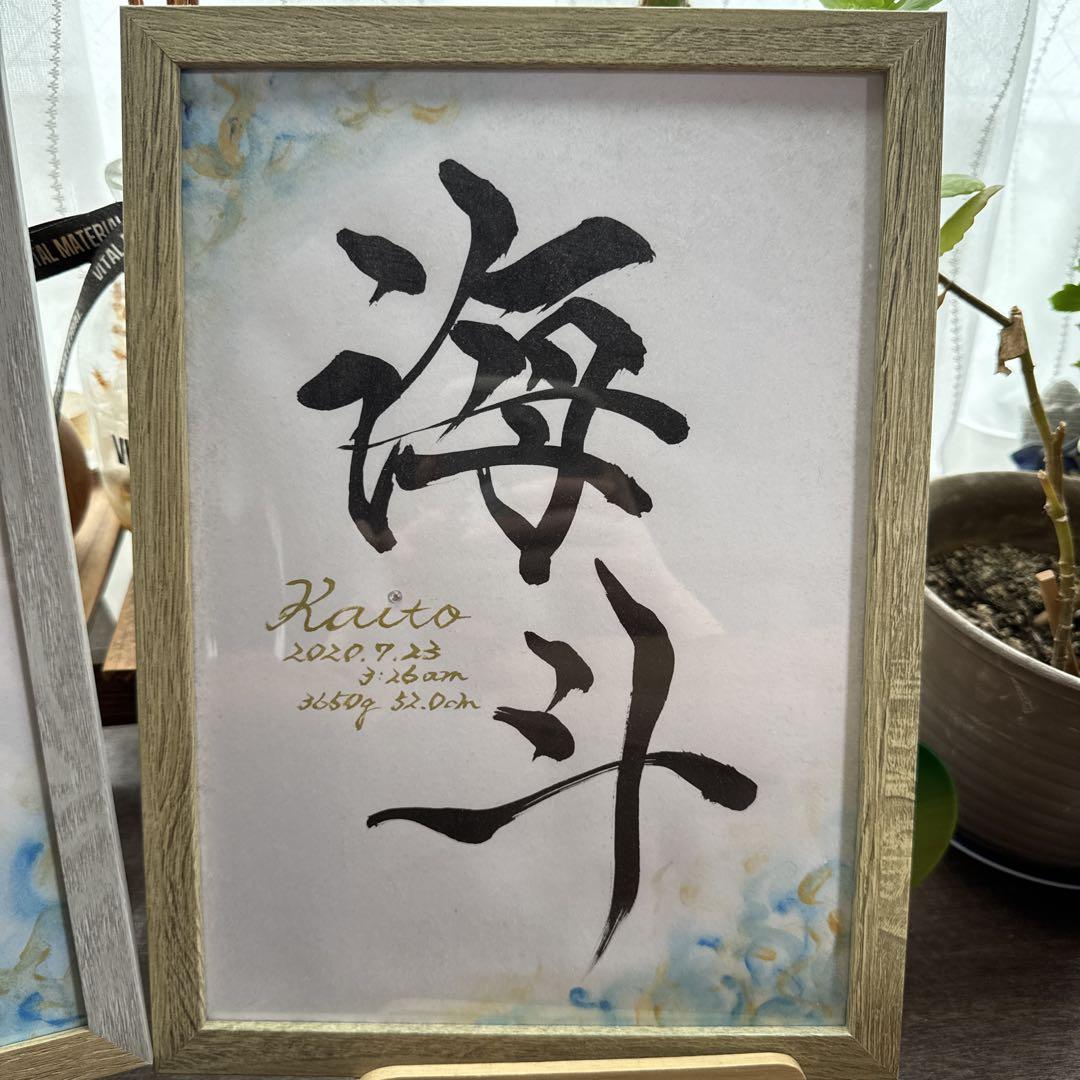 海斗
Kaito
2020.7.23
3:26am
3650g 52.0cm
VITAL MATERIAL
VITAL